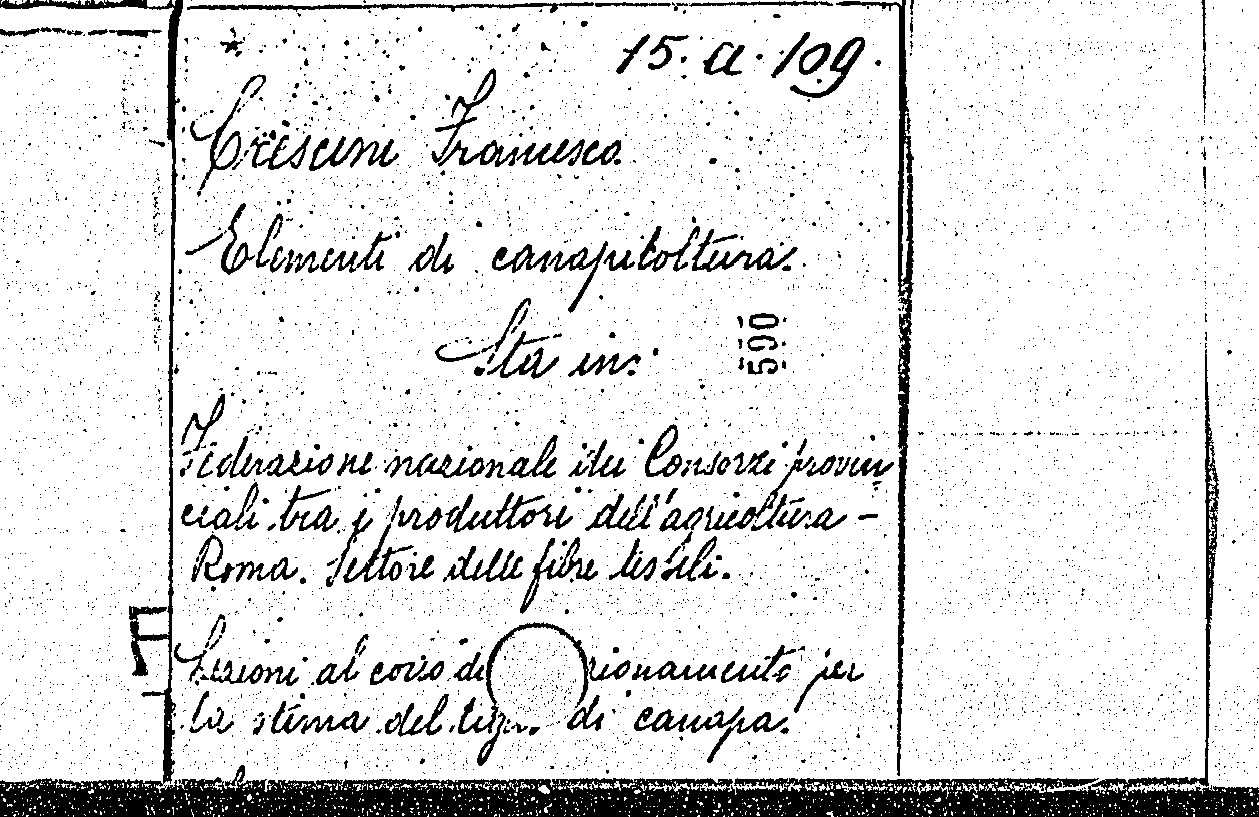 15. a. 109.
Crescini Francesco
Elementi di canapicoltura.
Sta in:
590
Federazione nazionale dei Consorzi provin
ciali tra i produttori dell'agricoltura -
Roma. Settore delle fibre tessili.
F
Lezioni al corso di zionamento per
la stima del di canapa.